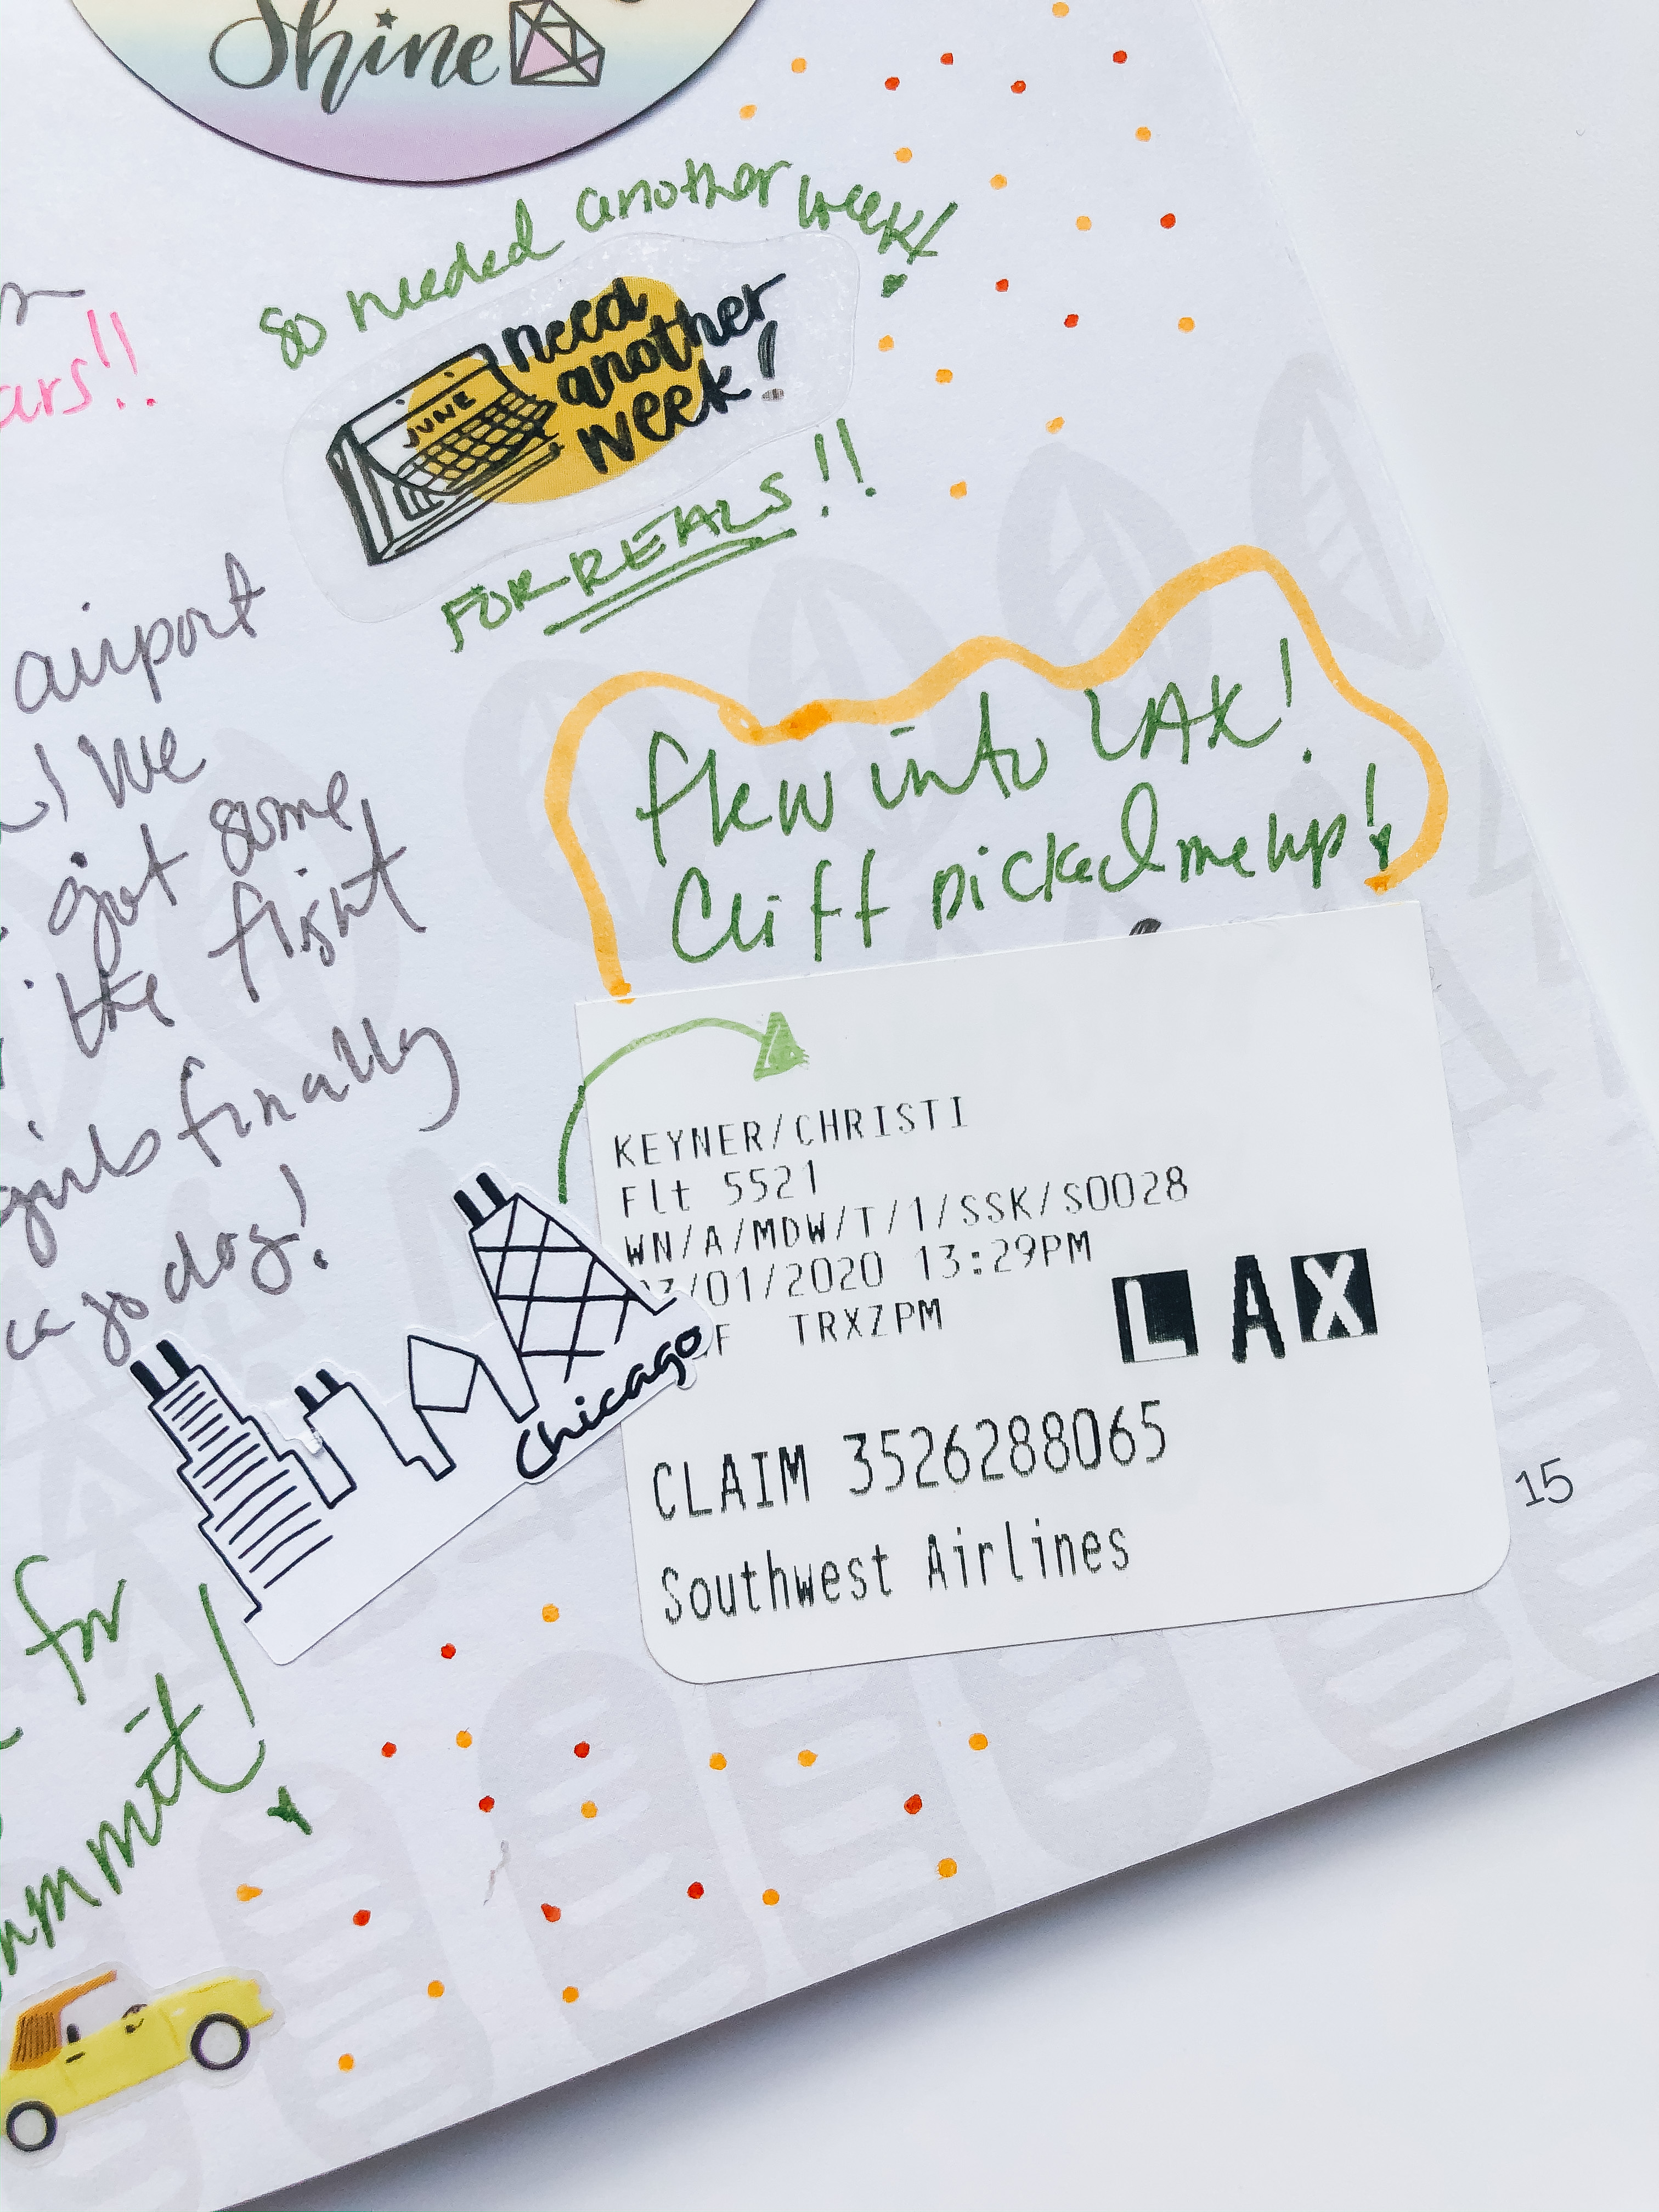 Shine
so needed another week!
need
another
week!
JUNE
FOR REALS!!
ars!!
airport
! we
got some
the flight
girls finally
ca go dog!
flew into LAX!
Cliff picked me up!
KEYNER/CHRISTI
Flt 5521
WN/A/MDW/T/1/SSK/S0028
/01/2020 13:29PM
F TRXZPM
LAX
Chicago
CLAIM 3526288065
Southwest Airlines
15
for
mmit!